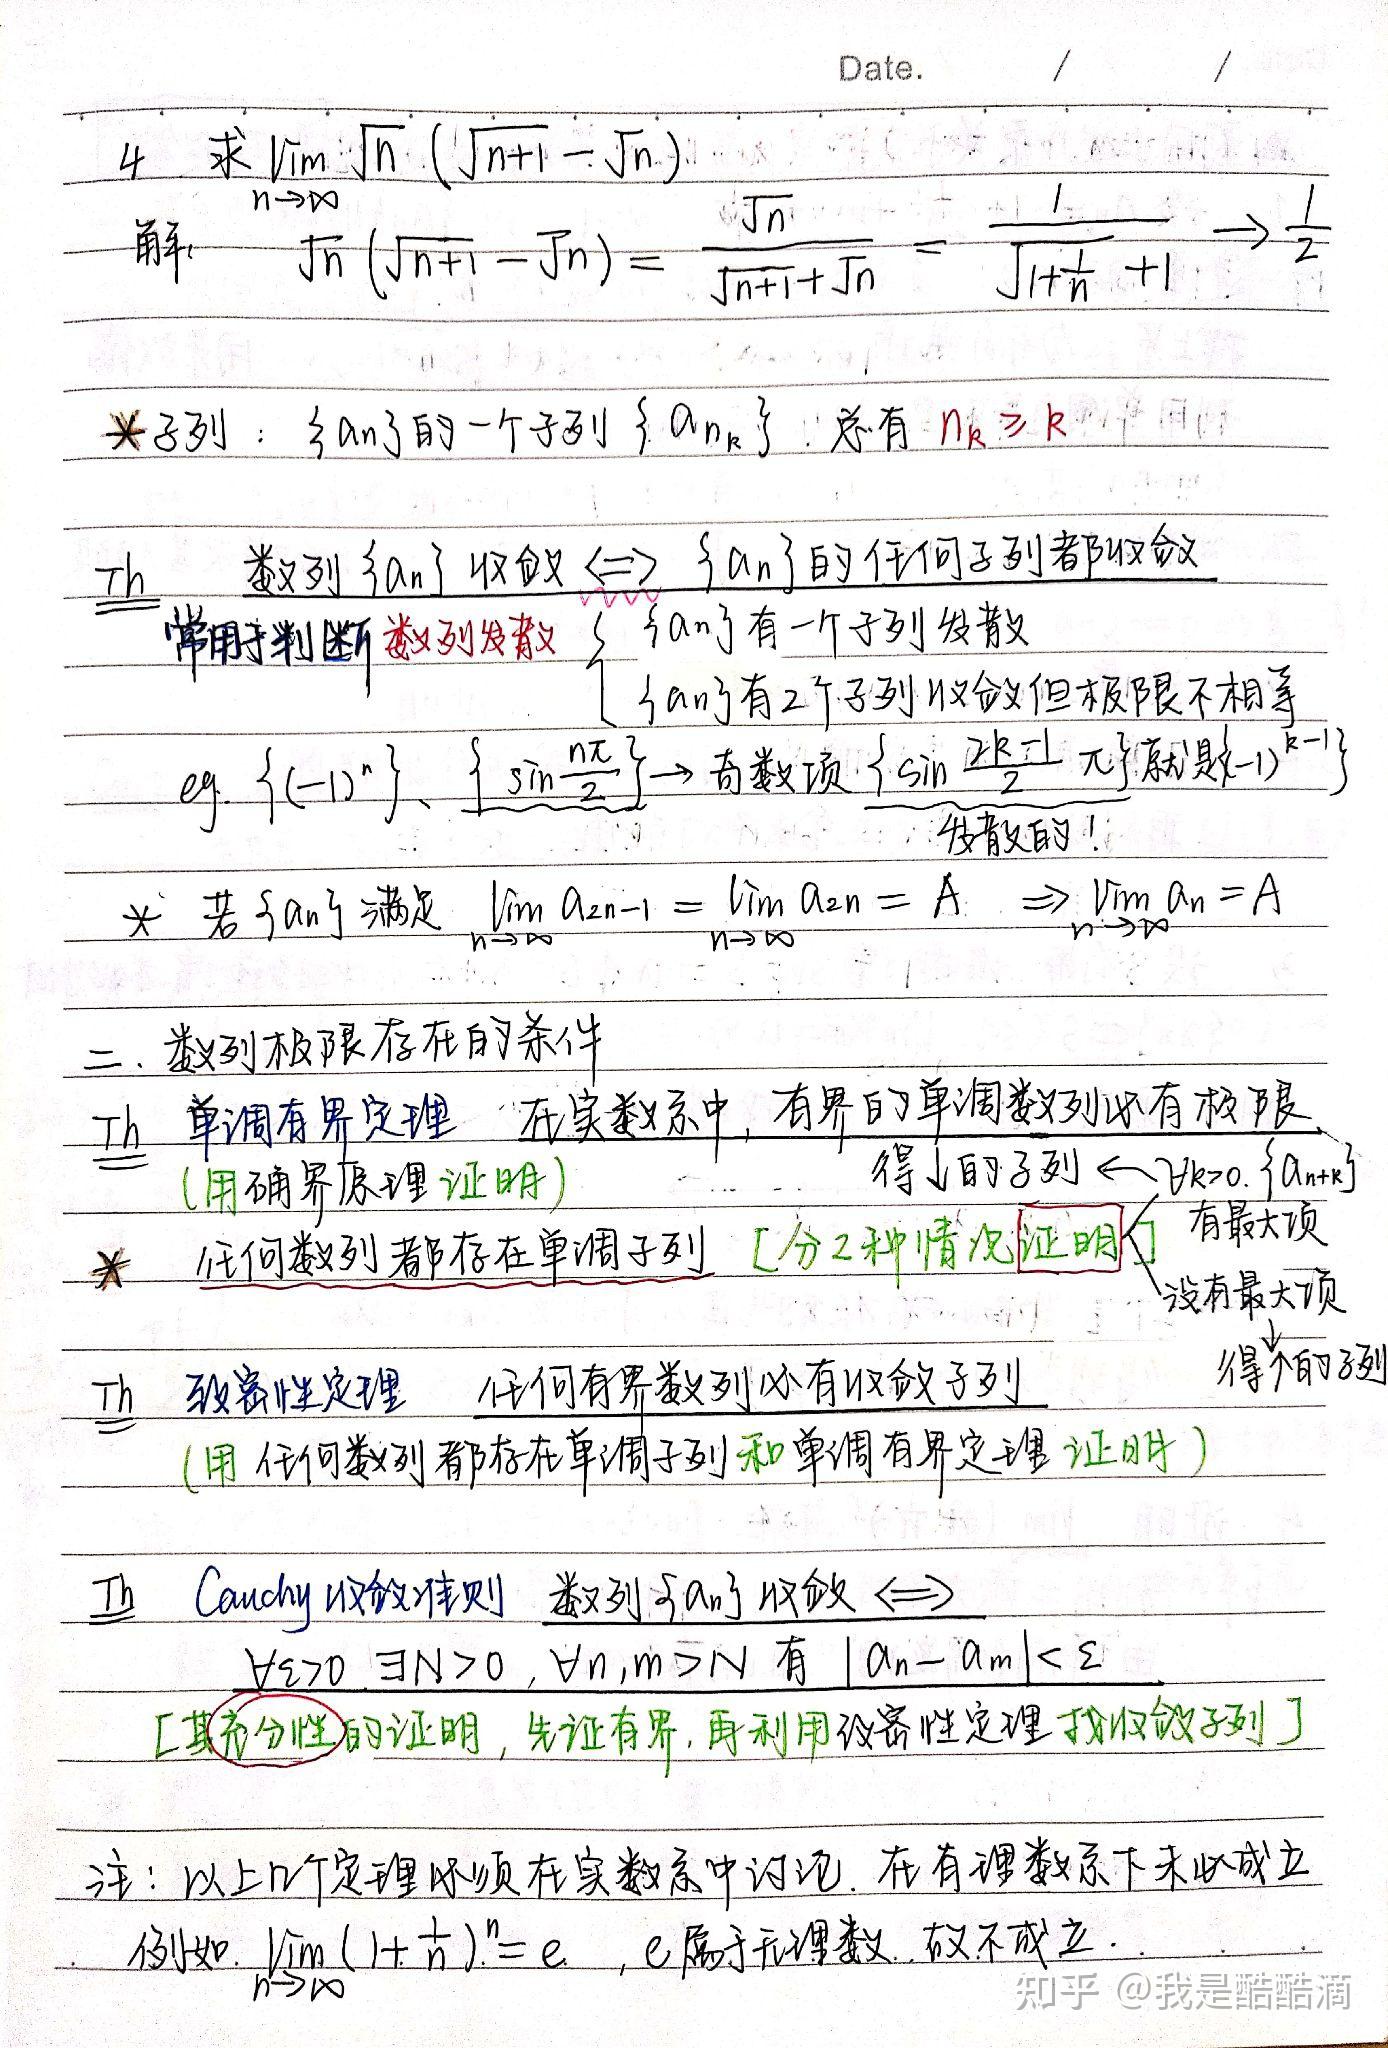 Date. / /
4 求 lim n→∞ √n (√n+1 − √n)
解: √n (√n+1 − √n) = √n / (√n+1 + √n) = 1 / (√1+1/n + 1) → 1/2
* 子列: {an}的一个子列 {ank}. 总有 nk ≥ k
Th 数列 {an} 收敛 <=> {an}的任何子列都收敛
常用于判断 数列发散 { {an}有一个子列发散
{an}有2个子列收敛但极限不相等
eg. {(-1)^n}、{sin nπ/2} → 奇数项 {sin 2k-1/2 π} 就是{(-1)^k-1}
发散的!
* 若{an}满足 lim n→∞ a2n-1 = lim n→∞ a2n = A => lim n→∞ an = A
二. 数列极限存在的条件
Th 单调有界定理 在实数系中, 有界的单调数列必有极限.
(用确界原理证明)
得↓的子列 ← ∀k>0. {an+k}
有最大项
* 任何数列都存在单调子列 [分2种情况证明]
没有最大项
↓
得↑的子列
Th 致密性定理 任何有界数列必有收敛子列
(用 任何数列都存在单调子列和单调有界定理 证明)
Th Cauchy收敛准则 数列{an}收敛 <=>
∀ε>0 ∃N>0, ∀n,m>N 有 |an − am| < ε
[其充分性的证明, 先证有界, 再利用致密性定理 找收敛子列]
注: 以上几个定理必须在实数系中讨论. 在有理数系下未必成立
例如. lim n→∞ (1+1/n)^n = e , e属于无理数. 故不成立.
知乎 @我是酷酷滴